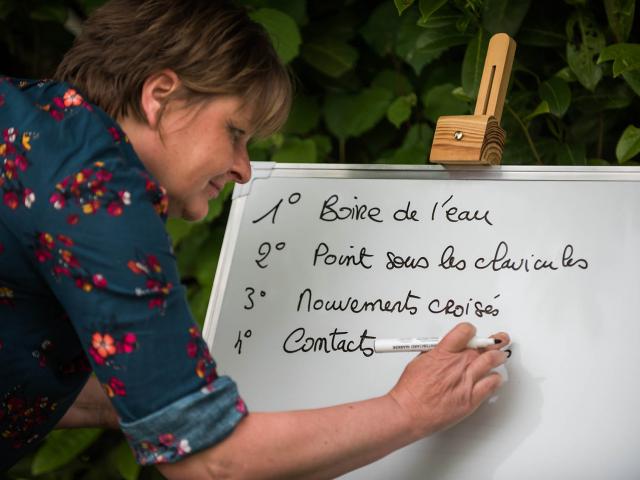 1° Boire de l'eau
2° Point sous les clavicules
3° Mouvements croisés
4° Contacts